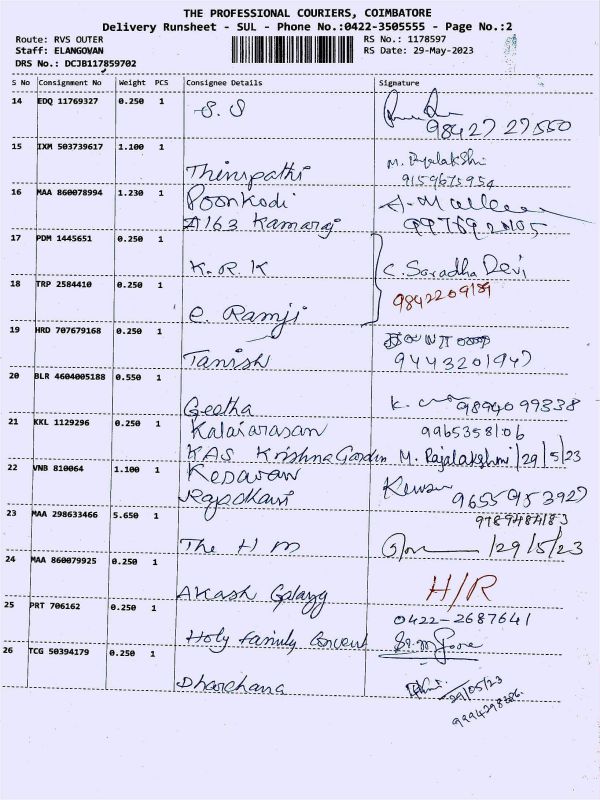 THE PROFESSIONAL COURIERS, COIMBATORE
Delivery Runsheet - SUL - Phone No.:0422-3505555 - Page No.:2
Route: RVS OUTER
RS No.: 1178597
Staff: ELANGOVAN
RS Date: 29-May-2023
DRS No.: DCJB117859702
S No Consignment No Weight PCS Consignee Details Signature
14 EDQ 11769327 0.250 1 S. S
98427 27550
15 IXM 503739617 1.100 1 M. Rajalakshmi
Thirupathi 9159675954
16 MAA 860078994 1.230 1 Poonkodi
A163 Kamaraj
17 PDM 1445651 0.250 1
K. R. K C. Saradha Devi
18 TRP 2584410 0.250 1 9842209189
C. Ramji
19 HRD 707679168 0.250 1
Tanish 9443201947
20 BLR 4604005188 0.550 1
Geetha K. 9894099338
21 KKL 1129296 0.250 1 Kalaiarasan 9965358106
KAS Krishna Garden M. Rajalakshmi 29/5/23
22 VNB 810064 1.100 1 Kesavan
9655953927
23 MAA 298633466 5.650 1 9789484183
The H M 29/5/23
24 MAA 860079925 0.250 1 H/R
Akash Galaxy
25 PRT 706162 0.250 1 0422-2687641
Holy Family Convent
26 TCG 50394179 0.250 1
Dharchana 29/05/23